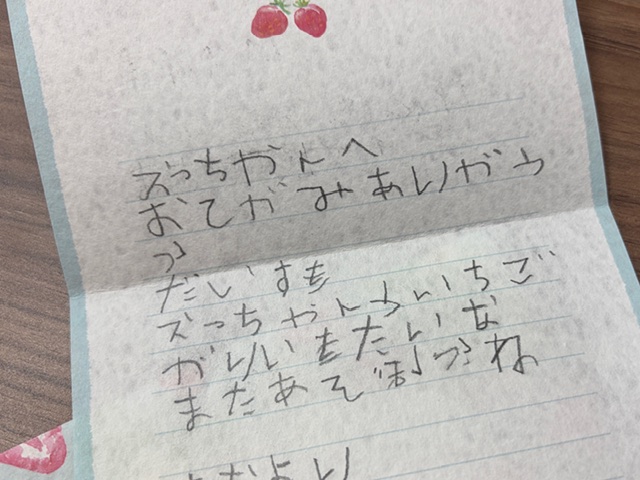 ズっちゃんへ
おてがみありがう
つ
だいすき
ズっちゃんといちご
がりいきたいな
またあそぼうね
より